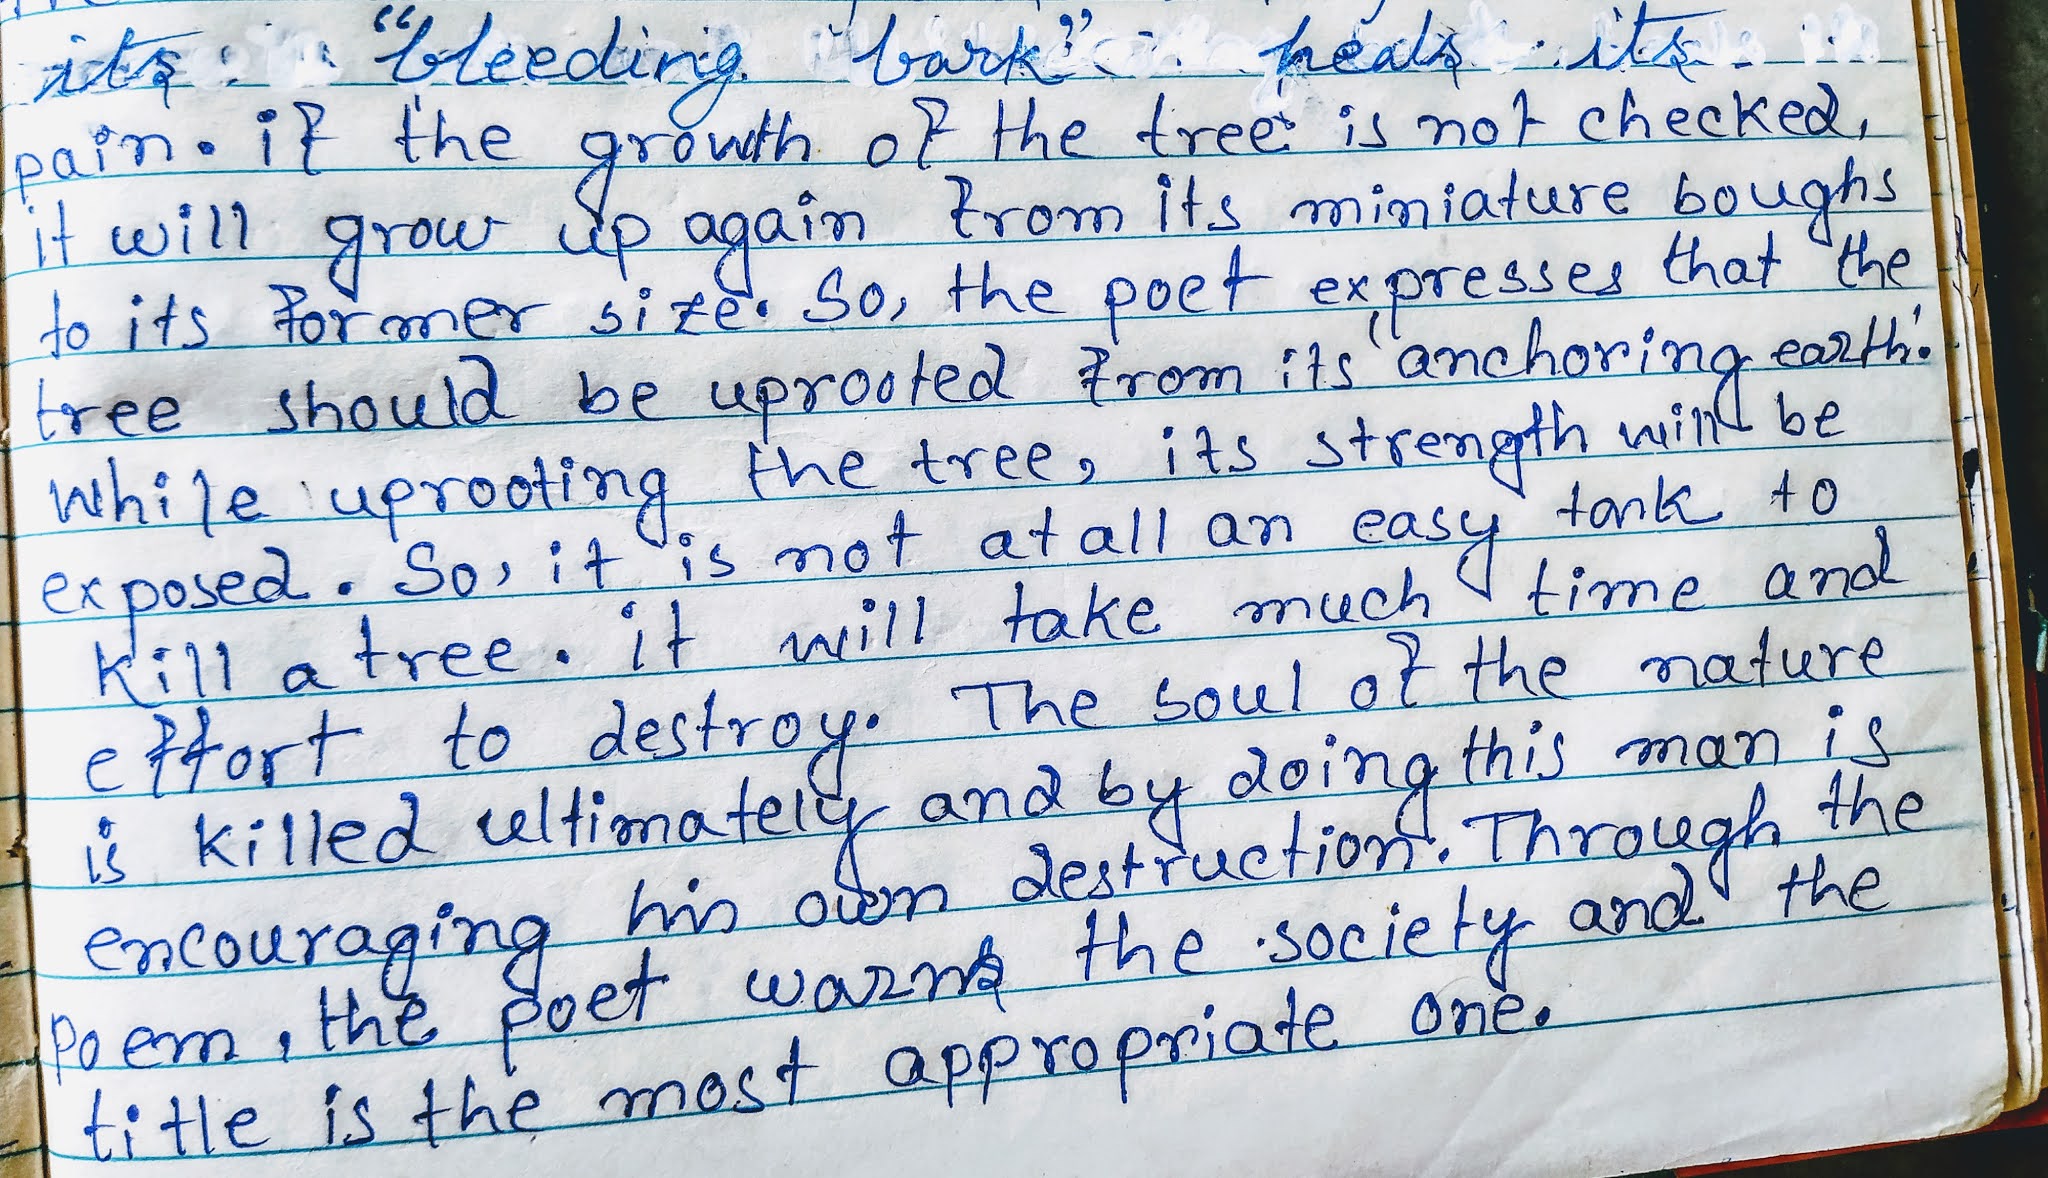 its "bleeding bark" heals its
pain. if the growth of the tree is not checked,
it will grow up again from its miniature boughs
to its former size. So, the poet expresses that the
tree should be uprooted from its 'anchoring earth'.
While uprooting the tree, its strength will be
exposed. So, it is not at all an easy task to
kill a tree. it will take much time and
effort to destroy. The soul of the nature
is killed ultimately and by doing this man is
encouraging his own destruction. Through the
poem, the poet warns the society and the
title is the most appropriate one.